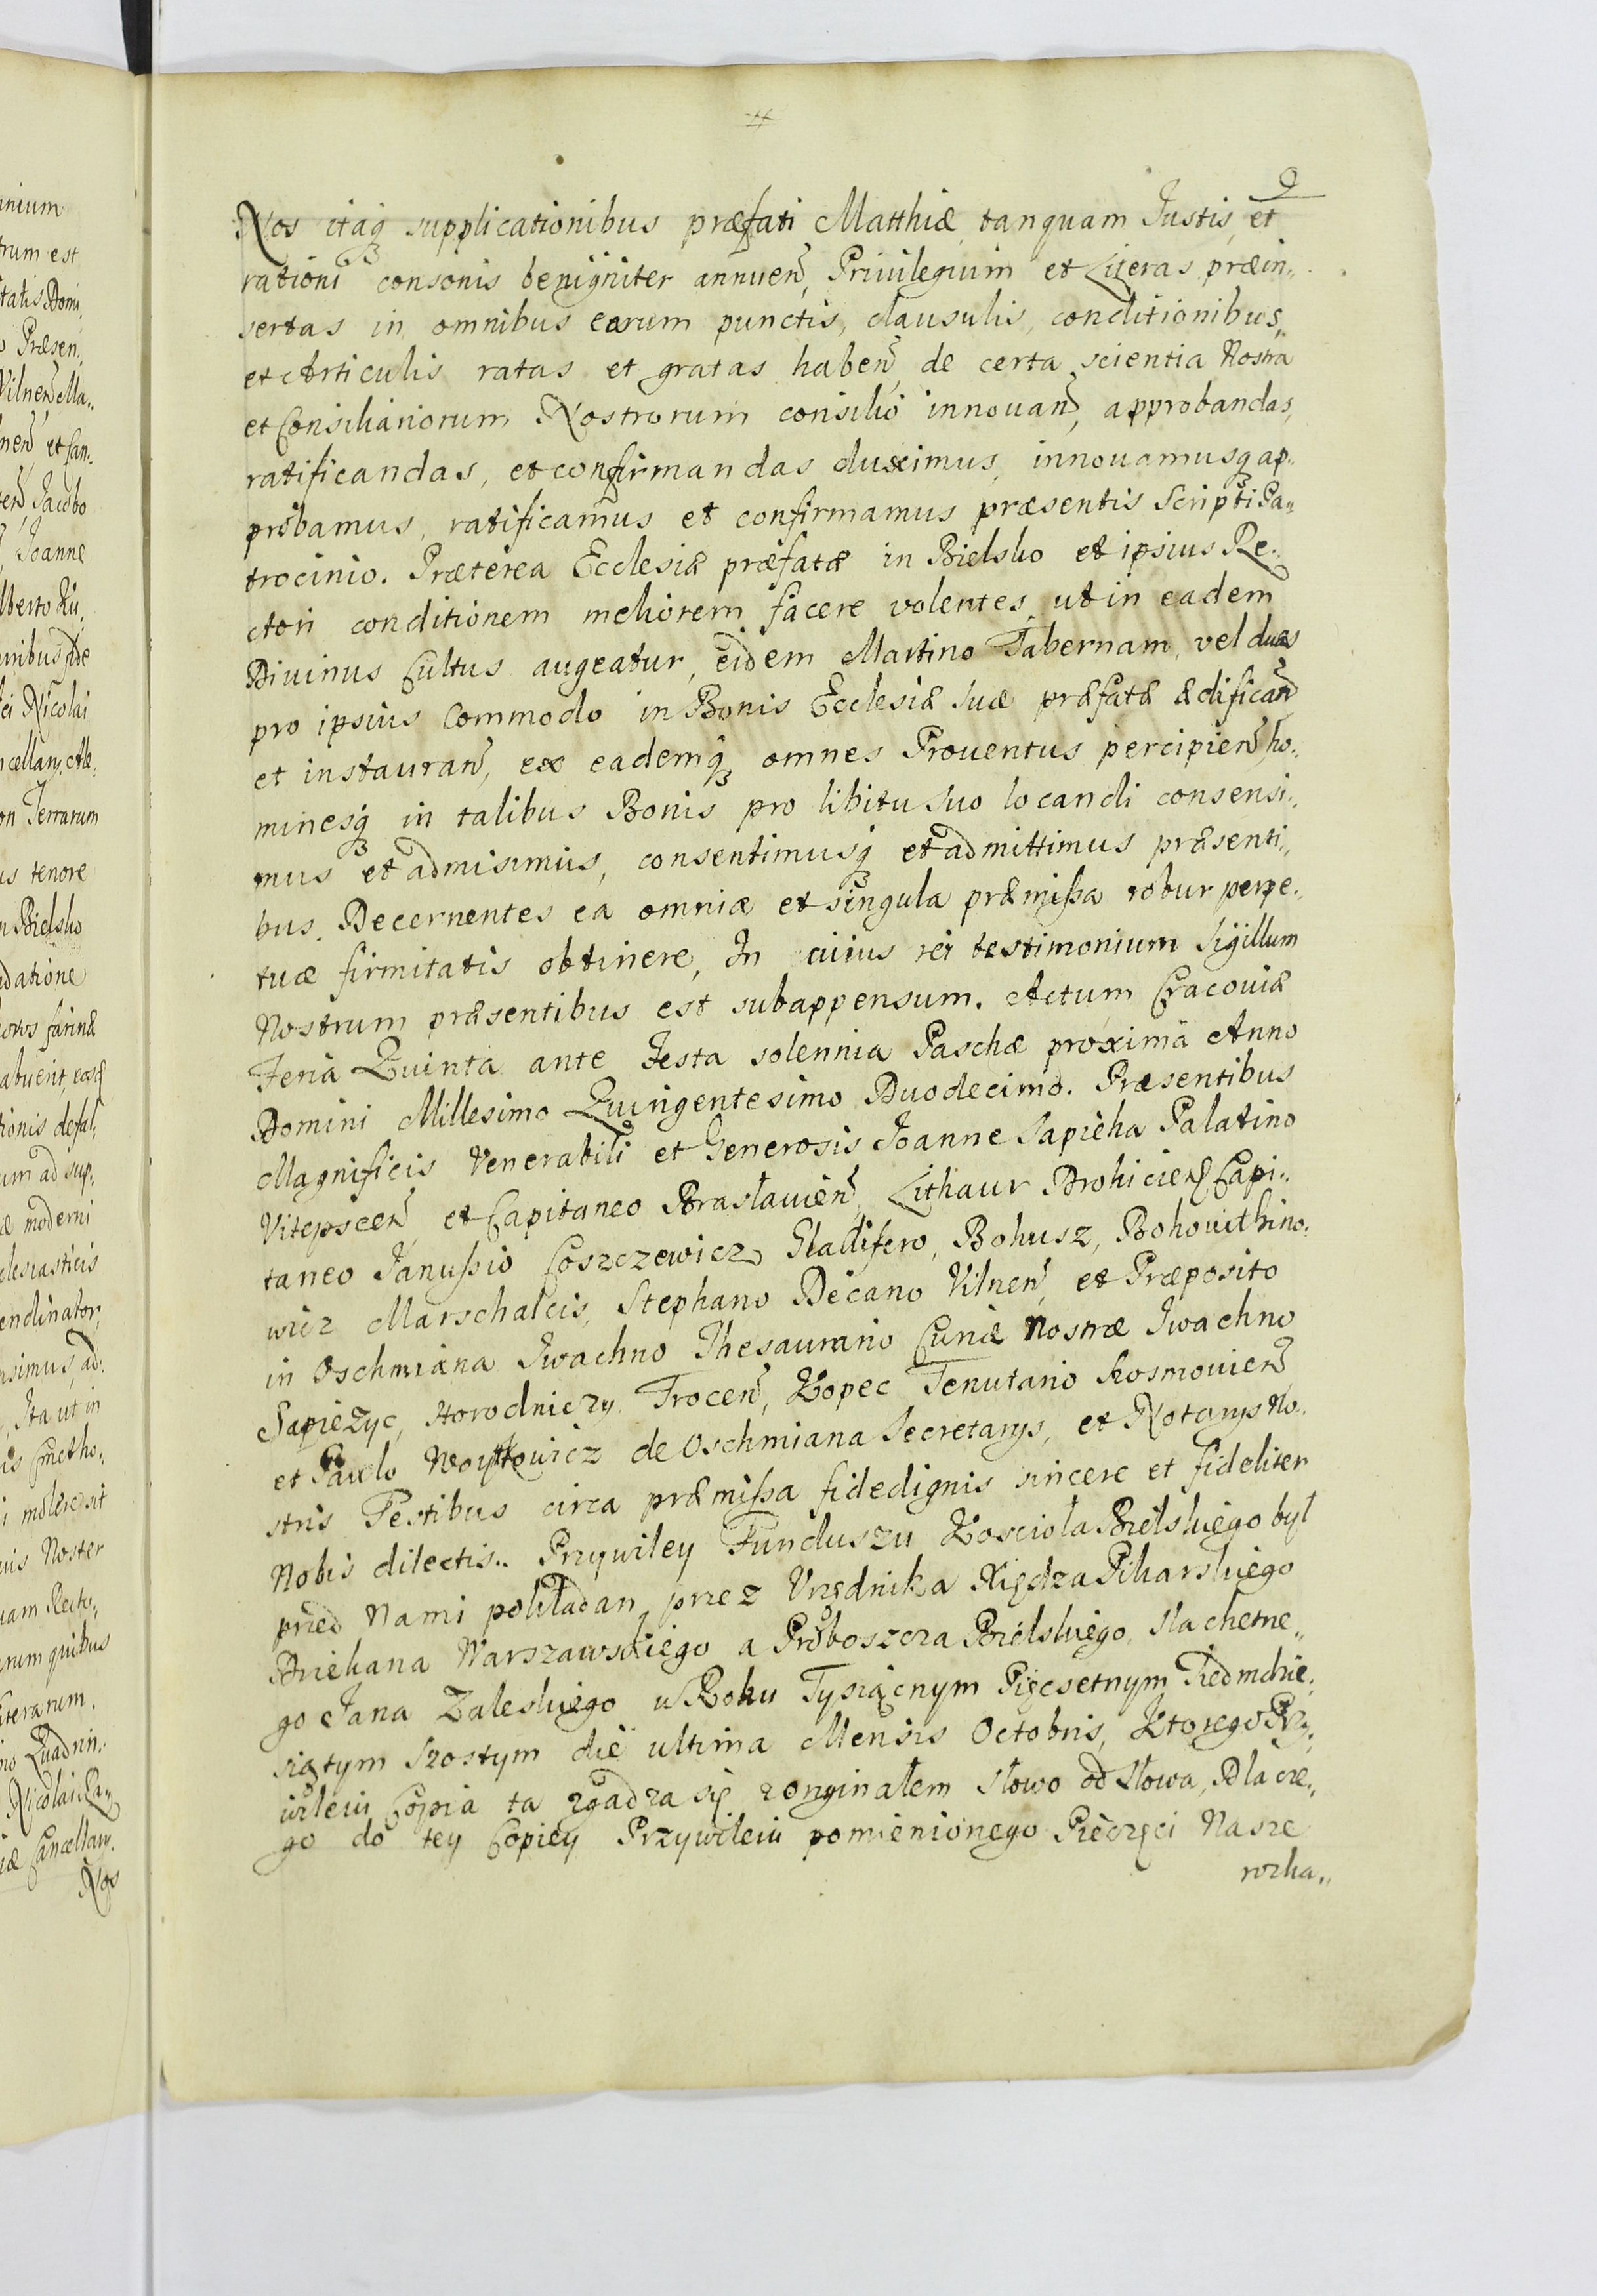 9
Nos itaq₃ supplicationibus præfati Matthiæ tanquam Justis, et
rationi consonis benigniter annuen̄, Priuilegium et Literas præin„
sertas in omnibus earum punctis, clausulis, conditionibus,
et Articulis ratas et gratas haben̄, de certa scientia Nostra
et Consiliariorum Nostrorum consilio innouan̄, approbandas,
ratificandas, et confirmandas duximus, innouamusq₃ ap„
probamus, ratificamus et confirmamus præsentis Scripti Pa„
trocinio. Præterea Ecclesiæ præfatæ in Bielsko et ipsius Re„
ctori conditionem meliorem facere volentes, ut in eadem
Diuinus Cultus augeatur, eidem Martino Tabernam, vel duas
pro ipsius Commodo in Bonis Ecclesiæ suæ præfatæ ædifican̄
et instauran̄, ex eademq₃ omnes Prouentus percipien̄, ho„
minesq₃ in talibus Bonis pro libitu suo locandi consensi„
mus et admisimus, consentimusq₃ et admittimus præsenti„
bus. Decernentes ea omnia et singula præmissa robur perpe„
tuæ firmitatis obtinere, In cuius rei testimonium Sigillum
Nostrum præsentibus est subappensum. Actum Cracouiæ
Feria Quinta ante Festa solennia Paschæ proxima Anno
Domini Millesimo Quingentesimo Duodecimo. Præsentibus
Magnificis Venerabili et Generosis Joanne Sapieha Palatino
Vitepscen̄ et Capitaneo Brasłauien̄, Lithaur Drohicien̄ Capi„
taneo Janussio Coszczewicz Gladifero, Bohusz, Bohouithino„
wicz Marschalcis, Stephano Decano Vilnen̄, et Præposito
in Oschmiana Iwachno Thesaurario Curiæ Nostræ Iwachno
Sapiezyc, Horodniczy Trocen̄, Kopec Tenutario Kosmouien̄
et Paulo Woytkowicz de Oschmiana Secretarys, et Notarys No„
stris Testibus circa præmissa fidedignis sincere et fideliter
Nobis dilectis.. Przywiley Funduszu Kosciola Bielskiego byl
przed Nami pokładan przez Vrzędnika Xiędza Pikarskiego
Dziekana Warszawskiego a Proboszcza Bielskiego, Slachetne„
go Jana Zaleskiego w Roku Tysiącnym Pięcsetnym Siedmdzie„
siątym Szostym die ultima Mensis Octobris, Ktorego Przy„
wileiu Copia ta zgadza się z orginałem słowo od słowa, Dla cze„
go do tey Copiey Przywileiu pomienionego Pieczęci Nasze
rozka„